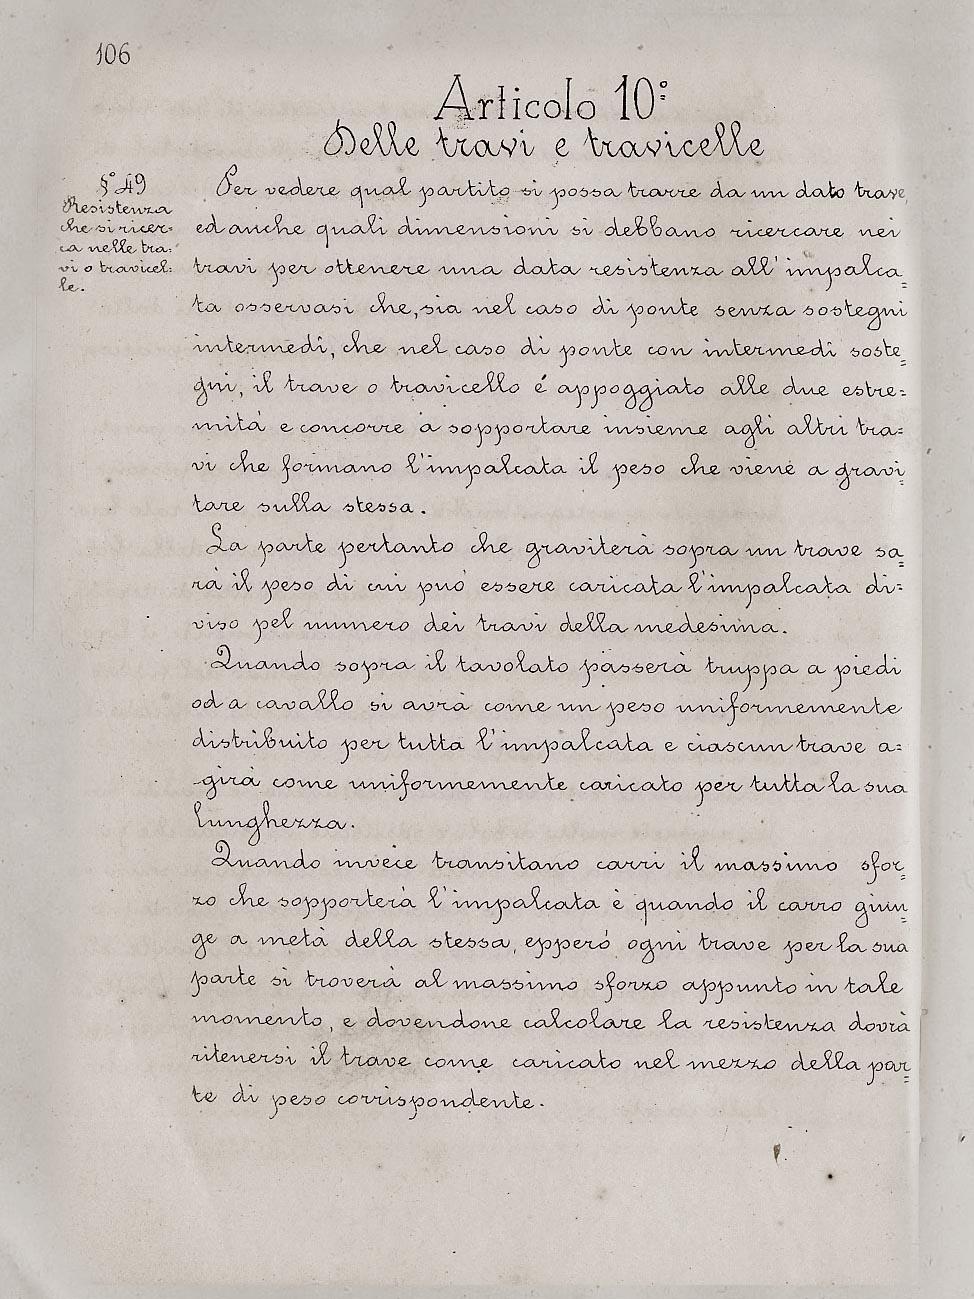 106
Articolo 10º
Delle travi e travicelle
§º 49
Resistenza
che si ricer=
ca nelle tra=
vi o travicel=
le.
Per vedere qual partito si possa trarre da un dato trave
ed anche quali dimensioni si debbano ricercare nei
travi per ottenere una data resistenza all'impalca=
ta osservasi che, sia nel caso di ponte senza sostegni
intermedi, che nel caso di ponte con intermedi soste=
gni, il trave o travicello é appoggiato alle due estre=
mitá e concorre a sopportare insieme agli altri tra=
vi che formano l'impalcata il peso che viene a gravi=
tare sulla stessa.
La parte pertanto che graviterà sopra un trave sa=
rà il peso di cui puó essere caricata l'impalcata di=
viso pel numero dei travi della medesima.
Quando sopra il tavolato passerà truppa a piedi
od a cavallo si avrà come un peso uniformemente
distribuito per tutta l'impalcata e ciascun trave a=
-girà come uniformemente caricato per tutta la sua
lunghezza.
Quando invece transitano carri il massimo sfor=
zo che sopporterà l'impalcata è quando il carro giun=
ge a metà della stessa, epperó ogni trave per la sua
parte si troverà al massimo sforzo appunto in tale
momento, e dovendone calcolare la resistenza dovrà
ritenersi il trave come caricato nel mezzo della par=
te di peso corrispondente.